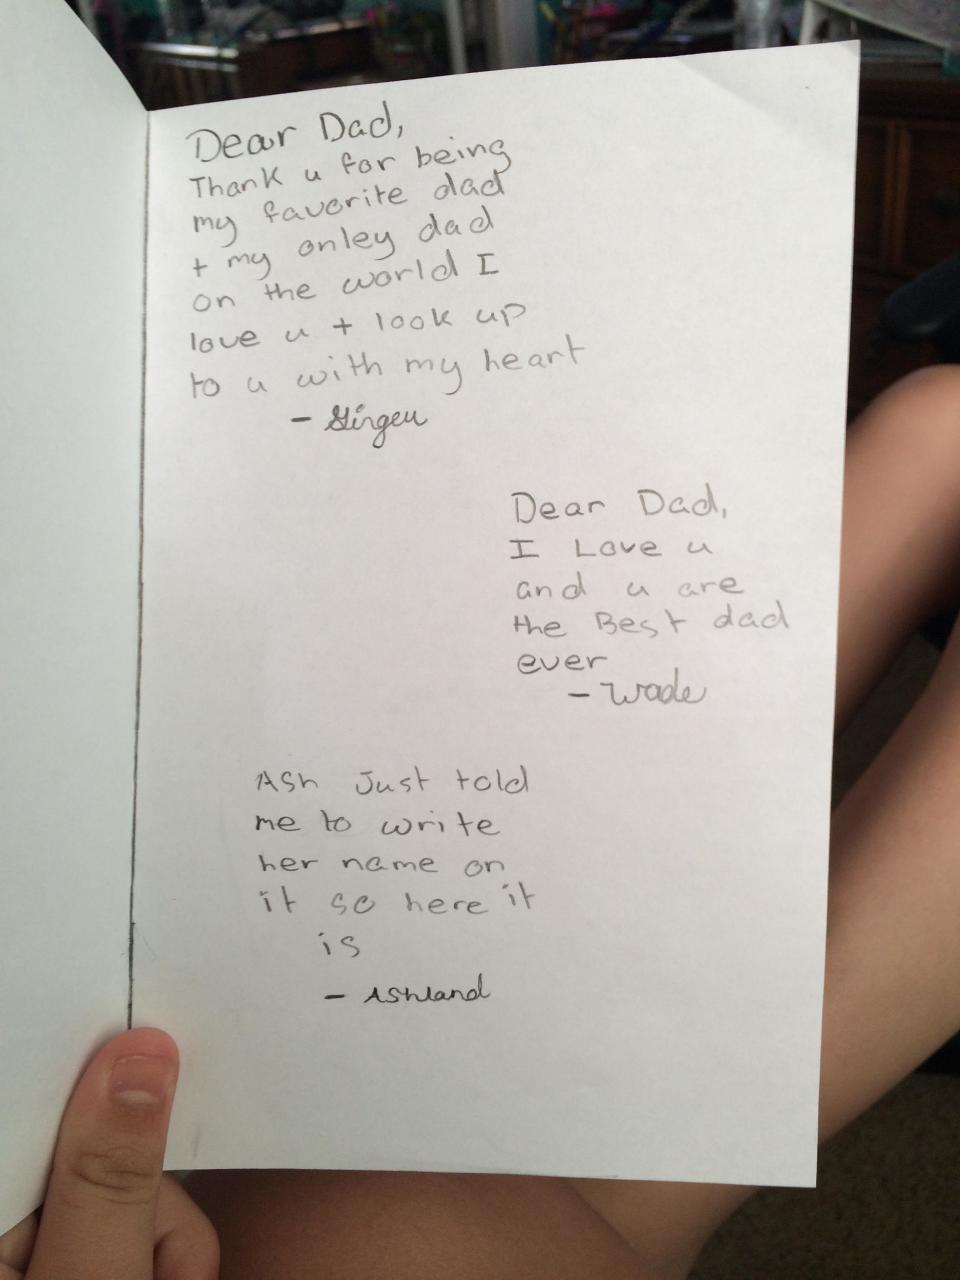 Dear Dad,
Thank u for being
my favorite dad
+ my onley dad
on the world I
love u + look up
to u with my heart
-
Dear Dad,
I Love u
and u are
the Best dad
ever
- Wade
Ash Just told
me to write
her name on
it so here it
is
- Ashland